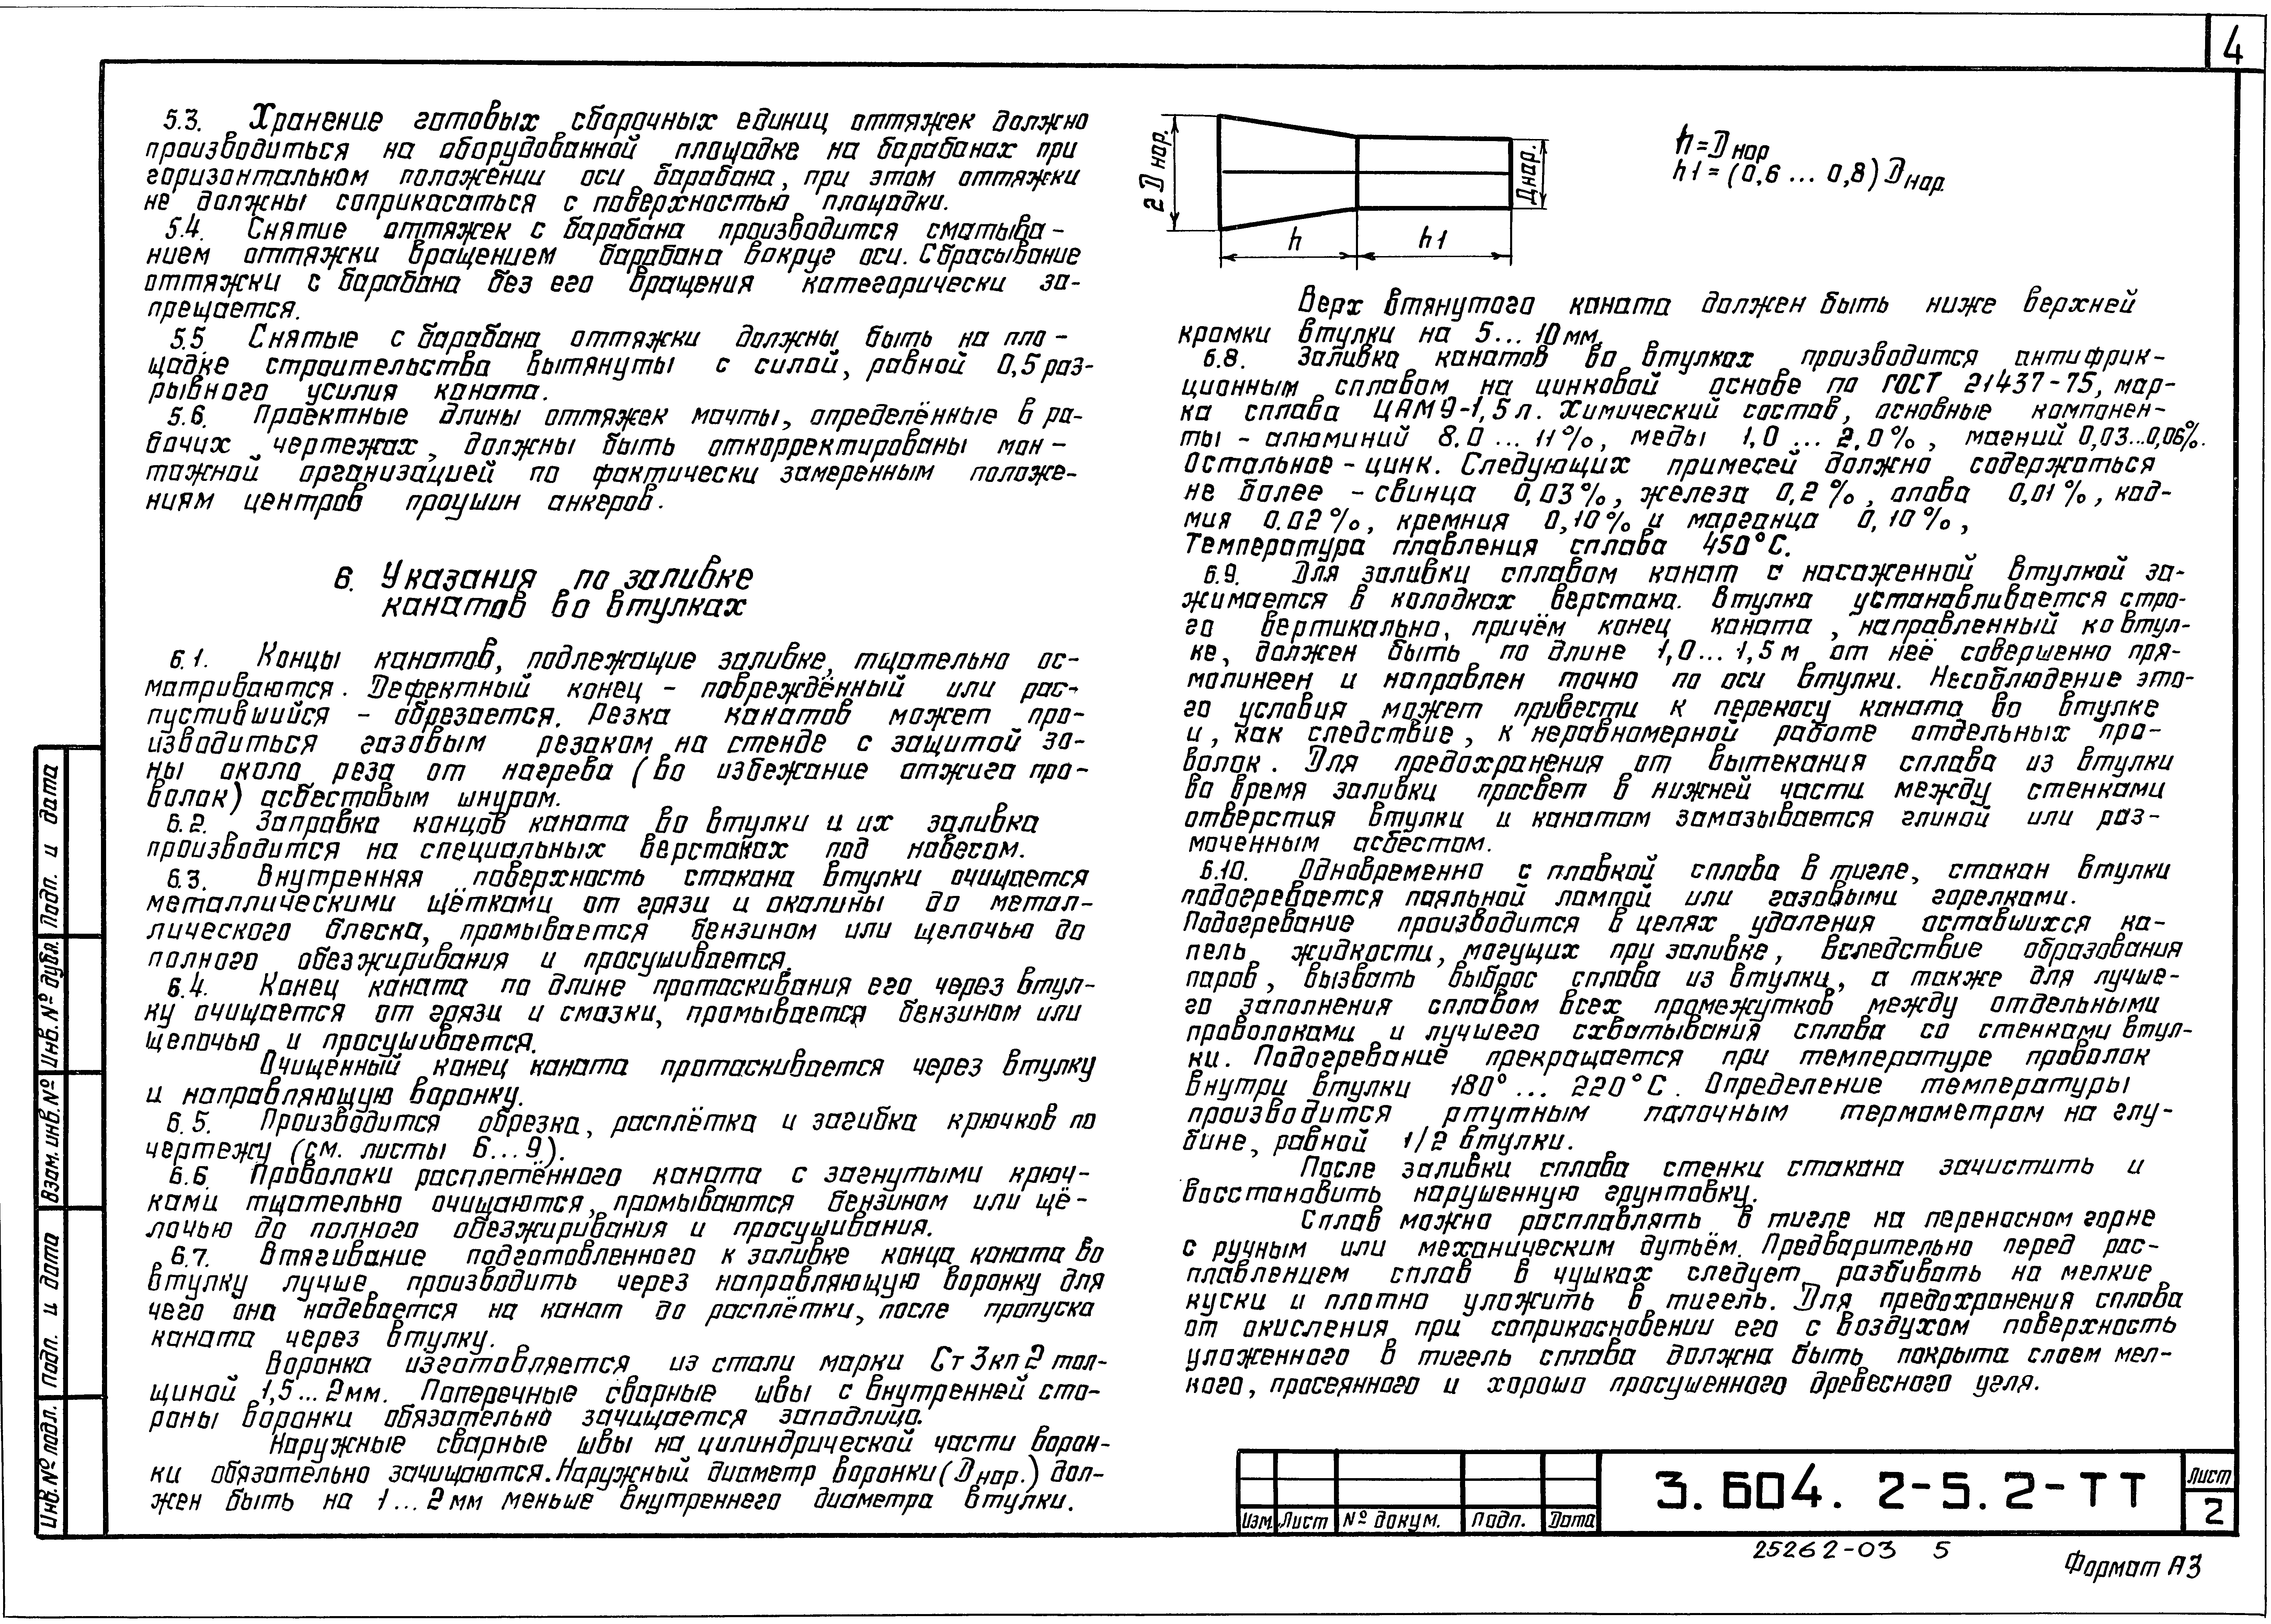 4
5.3. Хранение готовых сборочных единиц оттяжек должно
производиться на оборудованной площадке на барабанах при
горизонтальном положении оси барабана, при этом оттяжки
не должны соприкасаться с поверхностью площадки.
5.4. Снятие оттяжек с барабана производится сматыва-
нием оттяжки вращением барабана вокруг оси. Сбрасывание
оттяжки с барабана без его вращения категорически за-
прещается.
5.5. Снятые с барабана оттяжки должны быть на пло-
щадке строительства вытянуты с силой, равной 0,5 раз-
рывного усилия каната.
5.6. Проектные длины оттяжек мачты, определённые в ра-
бочих чертежах, должны быть откорректированы мон-
тажной организацией по фактически замеренным положе-
ниям центров проушин анкеров.
6. Указания по заливке
канатов во втулках
6.1. Концы канатов, подлежащие заливке, тщательно ос-
матриваются. Дефектный конец - повреждённый или рас-
пустившийся - обрезается. Резка канатов может про-
изводиться газовым резаком на стенде с защитой зо-
ны около реза от нагрева (во избежание отжига про-
волок) асбестовым шнуром.
6.2. Заправка концов каната во втулки и их заливка
производится на специальных верстаках под навесом.
6.3. Внутренняя поверхность стакана втулки очищается
металлическими щётками от грязи и окалины до метал-
лического блеска, промывается бензином или щелочью до
полного обезжиривания и просушивается.
6.4. Конец каната по длине протаскивания его через втул-
ку очищается от грязи и смазки, промывается бензином или
щелочью и просушивается.
Очищенный конец каната протаскивается через втулку
и направляющую воронку.
6.5. Производится обрезка, расплётка и загибка крючков по
чертежу (см. листы 6...9).
6.6. Проволоки расплетённого каната с загнутыми крюч-
ками тщательно очищаются, промываются бензином или щё-
лочью до полного обезжиривания и просушивания.
6.7. Втягивание подготовленного к заливке конца каната во
втулку лучше производить через направляющую воронку для
чего она надевается на канат до расплётки, после пропуска
каната через втулку.
Воронка изготовляется из стали марки Ст3кп2 тол-
щиной 1,5...2мм. Поперечные сварные швы с внутренней сто-
роны воронки обязательно зачищается заподлицо.
Наружные сварные швы на цилиндрической части ворон-
ки обязательно зачищаются. Наружный диаметр воронки (Dнар.) дол-
жен быть на 1...2мм меньше внутреннего диаметра втулки.
2Dнар.
Днар.
h
h1
h=Dнар
h1=(0,6...0,8)Dнар
Верх втянутого каната должен быть ниже верхней
кромки втулки на 5...10мм.
6.8. Заливка канатов во втулках производится антифрик-
ционным сплавом на цинковой основе по ГОСТ 21437-75, мар-
ка сплава ЦАМ9-1,5л. Химический состав, основные компонен-
ты - алюминий 8.0...11%, меды 1,0...2,0%, магний 0,03...0,06%.
Остальное - цинк. Следующих примесей должно содержаться
не более - свинца 0,03%, железа 0,2%, олова 0,01%, кад-
мия 0.02%, кремния 0,10% и марганца 0,10%,
Температура плавления сплава 450°С.
6.9. Для заливки сплавом канат с насаженной втулкой за-
жимается в колодках верстака. Втулка устанавливается стро-
го вертикально, причём конец каната, направленный ко втул-
ке, должен быть по длине 1,0...1,5м от неё совершенно пря-
молинеен и направлен точно по оси втулки. Несоблюдение это-
го условия может привести к перекосу каната во втулке
и, как следствие, к неравномерной работе отдельных про-
волок. Для предохранения от вытекания сплава из втулки
во время заливки просвет в нижней части между стенками
отверстия втулки и канатом замазывается глиной или раз-
моченным асбестом.
6.10. Одновременно с плавкой сплава в тигле, стакан втулки
подогревается паяльной лампой или газовыми горелками.
Подогревание производится в целях удаления оставшихся ка-
пель жидкости, могущих при заливке, вследствие образования
паров, вызвать выброс сплава из втулки, а также для лучше-
го заполнения сплавом всех промежутков между отдельными
проволоками и лучшего схватывания сплава со стенками втул-
ки. Подогревание прекращается при температуре проволок
внутри втулки 180°...220°С. Определение температуры
производится ртутным палочным термометром на глу-
бине, равной 1/2 втулки.
После заливки сплава стенки стакана зачистить и
восстановить нарушенную грунтовку.
Сплав можно расплавлять в тигле на переносном горне
с ручным или механическим дутьём. Предварительно перед рас-
плавлением сплав в чушках следует разбивать на мелкие
куски и плотно уложить в тигель. Для предохранения сплава
от окисления при соприкосновении его с воздухом поверхность
уложенного в тигель сплава должна быть покрыта слоем мел-
кого, просеянного и хорошо просушенного древесного угля.
Инв.№ подл. Подп. и дата Взам.инв.№ Инв.№ дубл. Подп. и дата
Изм. Лист № докум. Подп. Дата
3.604.2-5.2-ТТ
Лист
2
25262-03 5
Формат А3